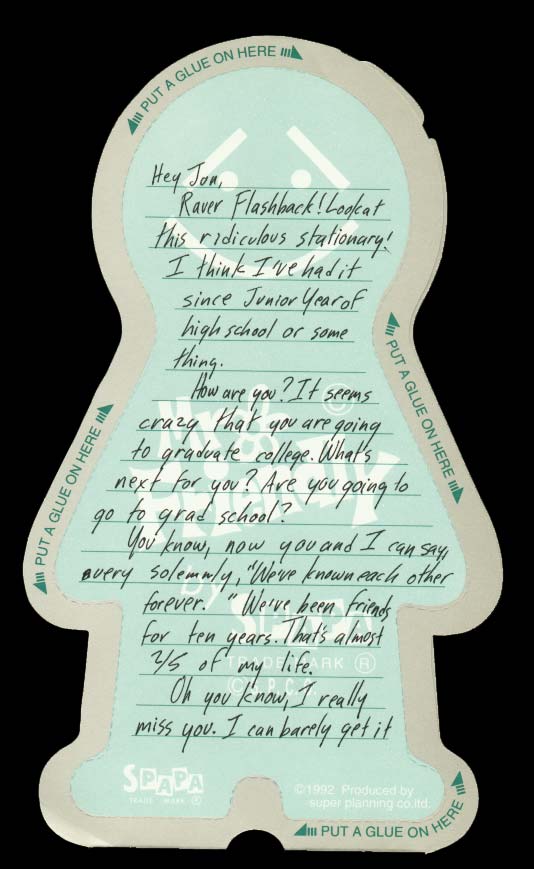 PUT A GLUE ON HERE
Hey Jon,
Raver Flashback! Look at
this ridiculous stationary!
I think I've had it
since Junior Year of
high school or some
thing.
How are you? It seems
crazy that you are going
to graduate college. What's
next for you? Are you going to
go to grad school?
You know, now you and I can say,
very solemnly, "We've known each other
forever." We've been friends
for ten years. That's almost
2/5 of my life.
Oh you know, I really
miss you. I can barely get it
PUT A GLUE ON HERE
PUT A GLUE ON HERE
Mr. Friendly
©
by
SPAPA
TRADE MARK ®
© S.P.C.O.
SPAPA
TRADE MARK ®
©1992 Produced by
super planning co.ltd.
PUT A GLUE ON HERE